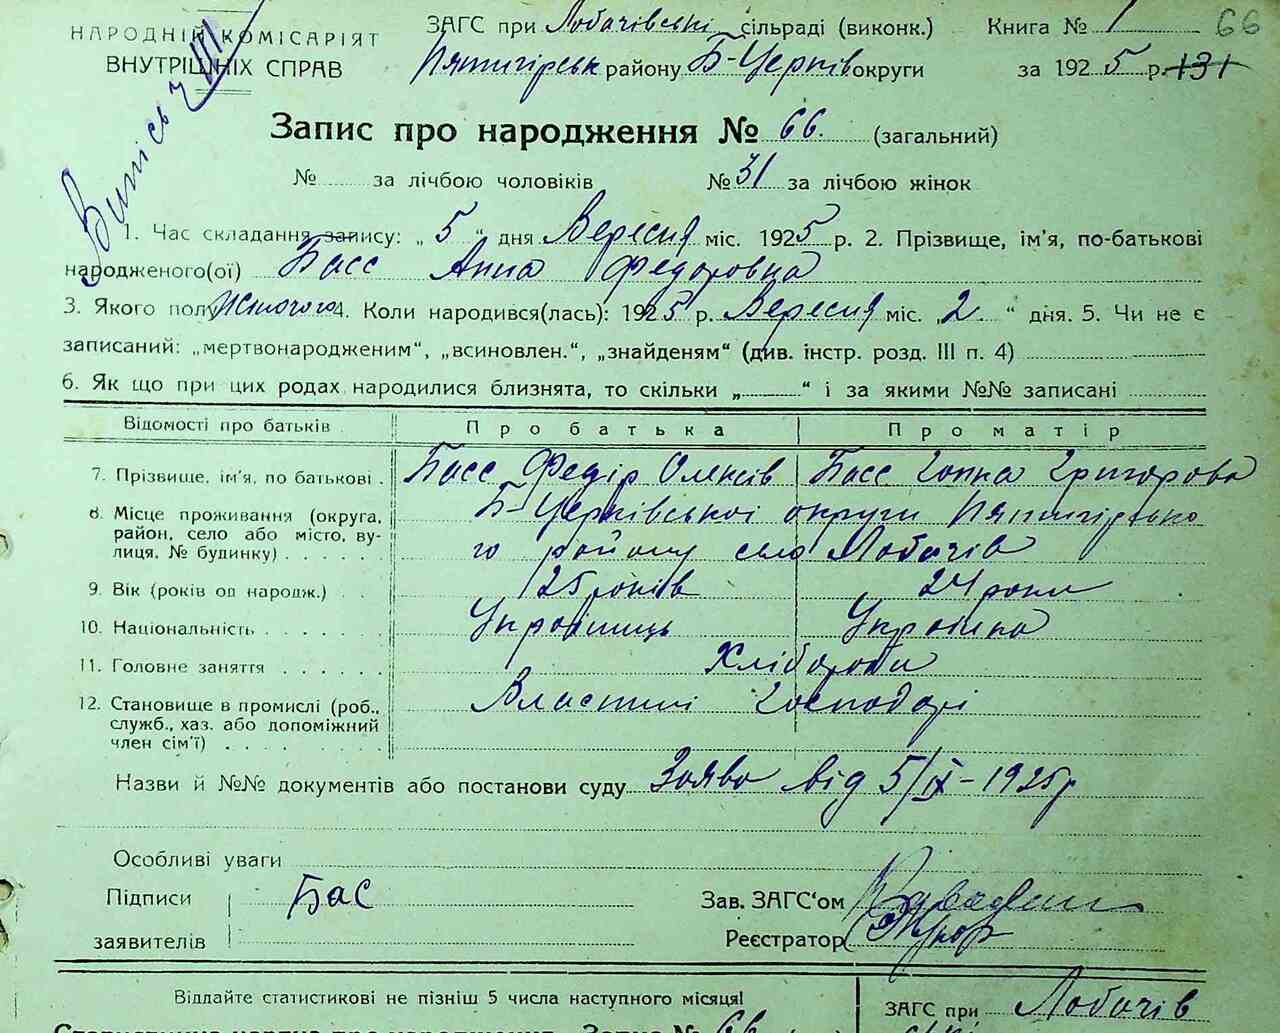 НАРОДНІЙ КОМІСАРІЯТ
ВНУТРІШНІХ СПРАВ
Випись
ЗАГС при Лобачівські сільраді (виконк.) Книга № 1 66
Пятигірськ району Б-Церків округи за 1925 р. 131
Запис про народження № 66. (загальний)
№ за лічбою чоловіків № 31 за лічбою жінок
1. Час складання запису: „ 5 “ дня Вересня міс. 1925 р. 2. Прізвище, ім'я, по-батькові
народженого(ої) Басс Анна Федоровна
3. Якого полу Жіночого 4. Коли народився(лась): 1925 р. Вересня міс. „ 2. “ дня. 5. Чи не є
записаний: „мертвонародженим“, „всиновлен.“, „знайденям“ (див. інстр. розд. III п. 4)
6. Як що при цих родах народилися близнята, то скільки „ “ і за якими №№ записані
Відомості про батьків Про батька Про матір
7. Прізвище, ім'я, по батькові . Басс Федір Олексів Басс Ганна Григорова
8. Місце проживання (округа, район, село або місто, вулиця, № будинку) . . . . . Б-Церківської округи Пятигірсько
го району село Лобачів
9. Вік (років од народж.) . . 25 років 24 роки
10. Національність . . . . . . Українець Українка
11. Головне заняття . . . . . . Хлібороби
12. Становище в промислі (роб., Властиві Господарі
служб., хаз. або допоміжний
член сім'ї) . . . . . . . .
Назви й №№ документів або постанови суду Заява від 5/IX-1925р
Особливі уваги
Підписи Бас Зав. ЗАГС'ом
заявителів Реєстратор
Віддайте статистикові не пізніш 5 числа наступного місяця!
ЗАГС при Лобачів
Запис № 66